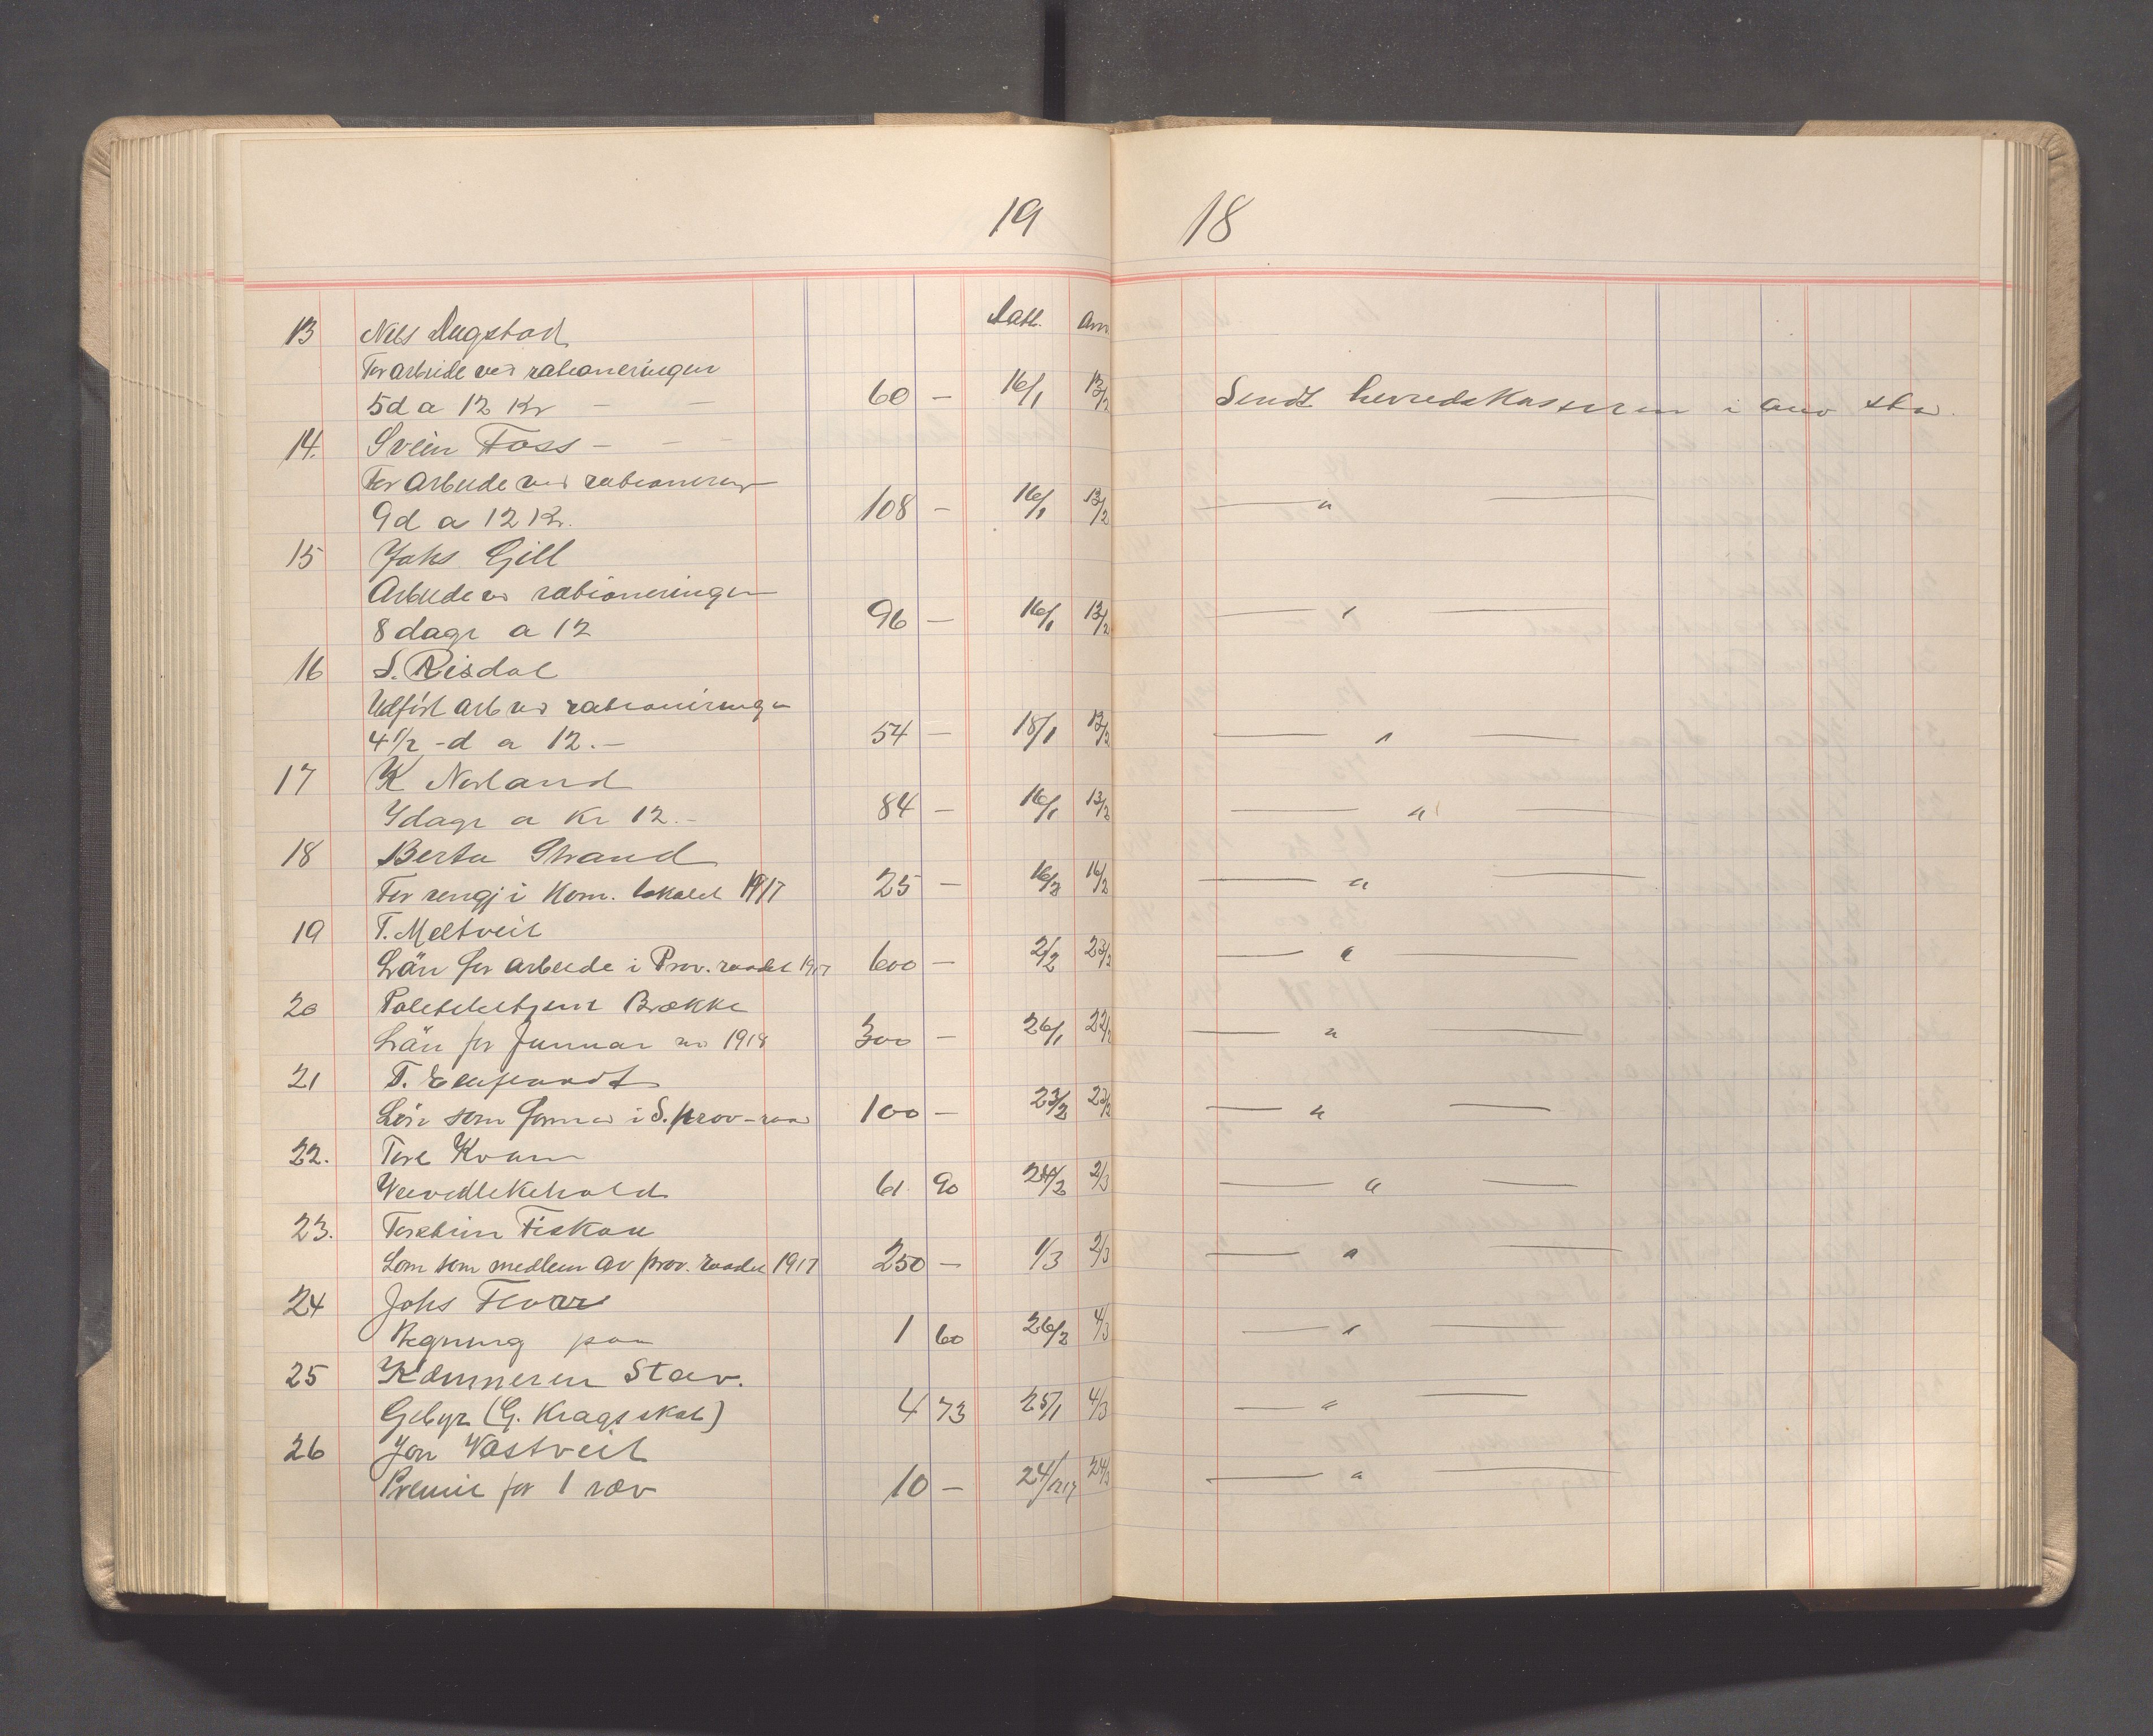 19 18
Dat. Anv.
13 Nils Augstad
For arbeide ved rationeringen
5 d a 12 Kr — — 60 — 16/1 13/2 Sendt herredskasseren i anv
14. Svein Foss — — —
For arbeide ved rationering
9 d a 12 Kr. 108 — 16/1 13/2 — " —
15 Johs Gill
Arbeide ved rationeringen
8 dage a 12 96 — 16/1 13/2 — " —
16 S. Risdal
Udført arb ved rationeringen
4 1/2 - d a 12. — 54 — 18/1 13/2 — " —
17 K Norland
7 dage a Kr 12. — 84 — 16/1 13/2 — " —
18 Berta Strand
For rengj i Kom. lokalet 1917 25 — 16/2 16/2 — " —
19 T. Meltveit
Løn for arbeide i Prov. raadet 1917 600 — 2/2 23/2 — " —
20 Politibetjent Brække
Løn for Januar 1918 300 — 26/1 22/2 — " —
21 T.
Løn som i S. prov-raad 100 — 23/2 23/2 — " —
22. Tore Kvam
Veivedlikehold 61 90 24/2 2/3 — " —
23. Torstein Fiskaa
Løn som medlem av prov. raadet 1917 250 — 1/3 2/3 — " —
24 Johs
Regning paa 1 60 26/2 4/3 — " —
25 Kæmneren Stav.
Gebyr (G. Krags skat) 4 73 25/1 4/3 — " —
26 Jon Vastveit
Premie for 1 ræv 10 — 24/12 17 24/3 — " —